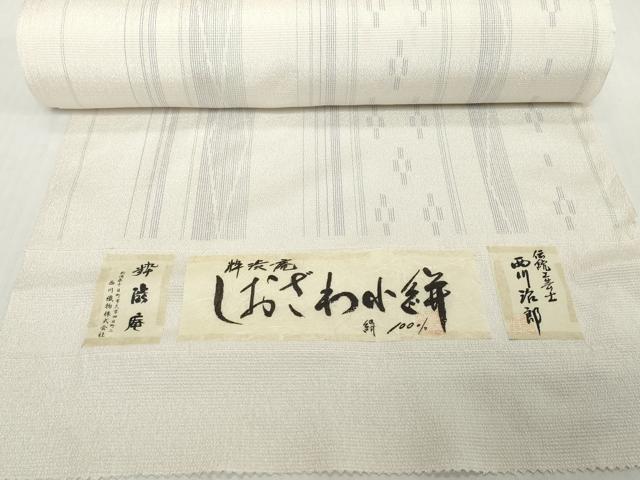 粋渋庵
しおざわ小絣
絹 100%
伝統工芸士
西川治郎
粋渋庵
西川織物株式会社